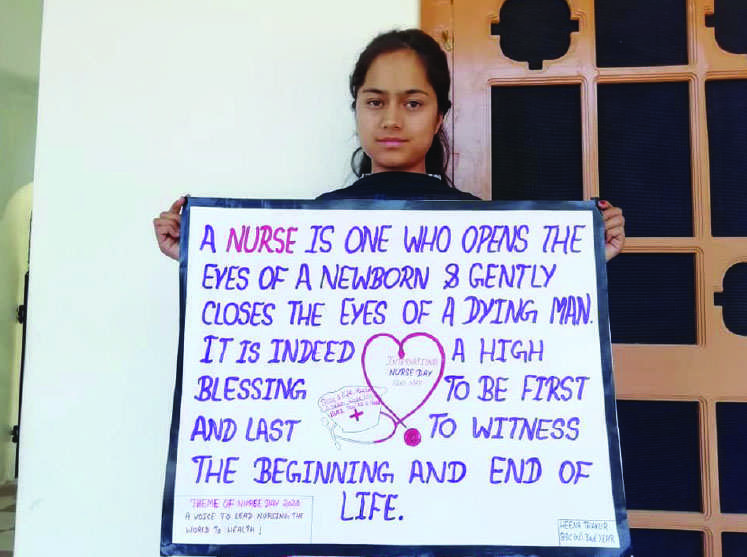 A NURSE IS ONE WHO OPENS THE
EYES OF A NEWBORN & GENTLY
CLOSES THE EYES OF A DYING MAN.
IT IS INDEED A HIGH
BLESSING TO BE FIRST
AND LAST TO WITNESS
THE BEGINNING AND END OF
LIFE.
INTERNATIONAL
NURSE DAY
THEME OF NURSE DAY 2020
A VOICE TO LEAD NURSING THE
WORLD TO HEALTH
HEENA THAKUR
YEAR